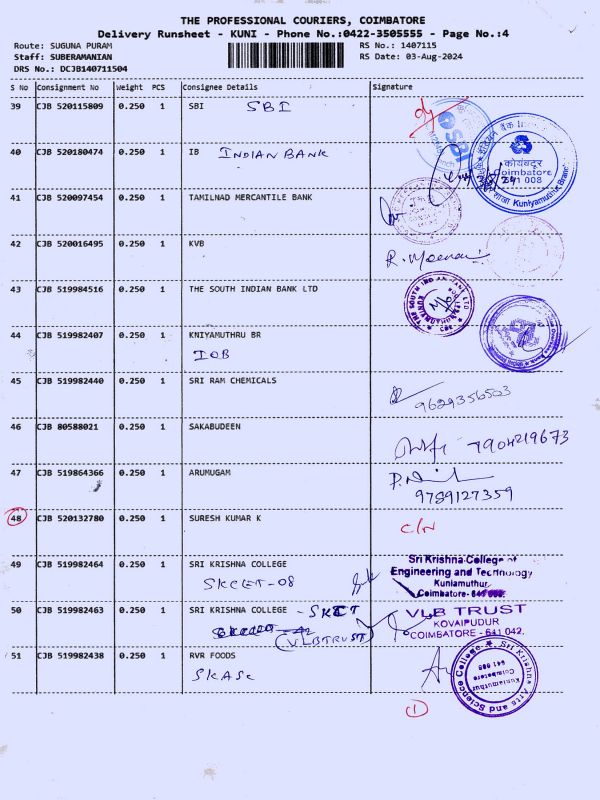 THE PROFESSIONAL COURIERS, COIMBATORE
Delivery Runsheet - KUNI - Phone No.:0422-3505555 - Page No.:4
Route: SUGUNA PURAM
RS No.: 1407115
Staff: SUBERAMANIAN
RS Date: 03-Aug-2024
DRS No.: DCJB140711504
S No Consignment No Weight PCS Consignee Details Signature
39 CJB 520115809 0.250 1 SBI SBI
SBI
40 CJB 520180474 0.250 1 IB INDIAN BANK
कोयंबटूर
Coimbatore
641 008
Kuniyamuthur Branch
41 CJB 520097454 0.250 1 TAMILNAD MERCANTILE BANK
42 CJB 520016495 0.250 1 KVB
R. Meenai
43 CJB 519984516 0.250 1 THE SOUTH INDIAN BANK LTD
THE SOUTH INDIAN BANK LTD
44 CJB 519982407 0.250 1 KNIYAMUTHRU BR
IOB
45 CJB 519982440 0.250 1 SRI RAM CHEMICALS
9629356503
46 CJB 80588021 0.250 1 SAKABUDEEN
7904219673
47 CJB 519864366 0.250 1 ARUMUGAM
9789127359
48 CJB 520132780 0.250 1 SURESH KUMAR K
C/N
49 CJB 519982464 0.250 1 SRI KRISHNA COLLEGE
SKCET-08
Sri Krishna College of
Engineering and Technology
Kuniamuthur
Coimbatore- 641 008.
50 CJB 519982463 0.250 1 SRI KRISHNA COLLEGE - SKCT
(VLBTRUST)
VLB TRUST
KOVAIPUDUR
COIMBATORE - 641 042.
51 CJB 519982438 0.250 1 RVR FOODS
SKASC
Sri Krishna Arts and Science College
Kuniamuthur
Coimbatore
641 008
1